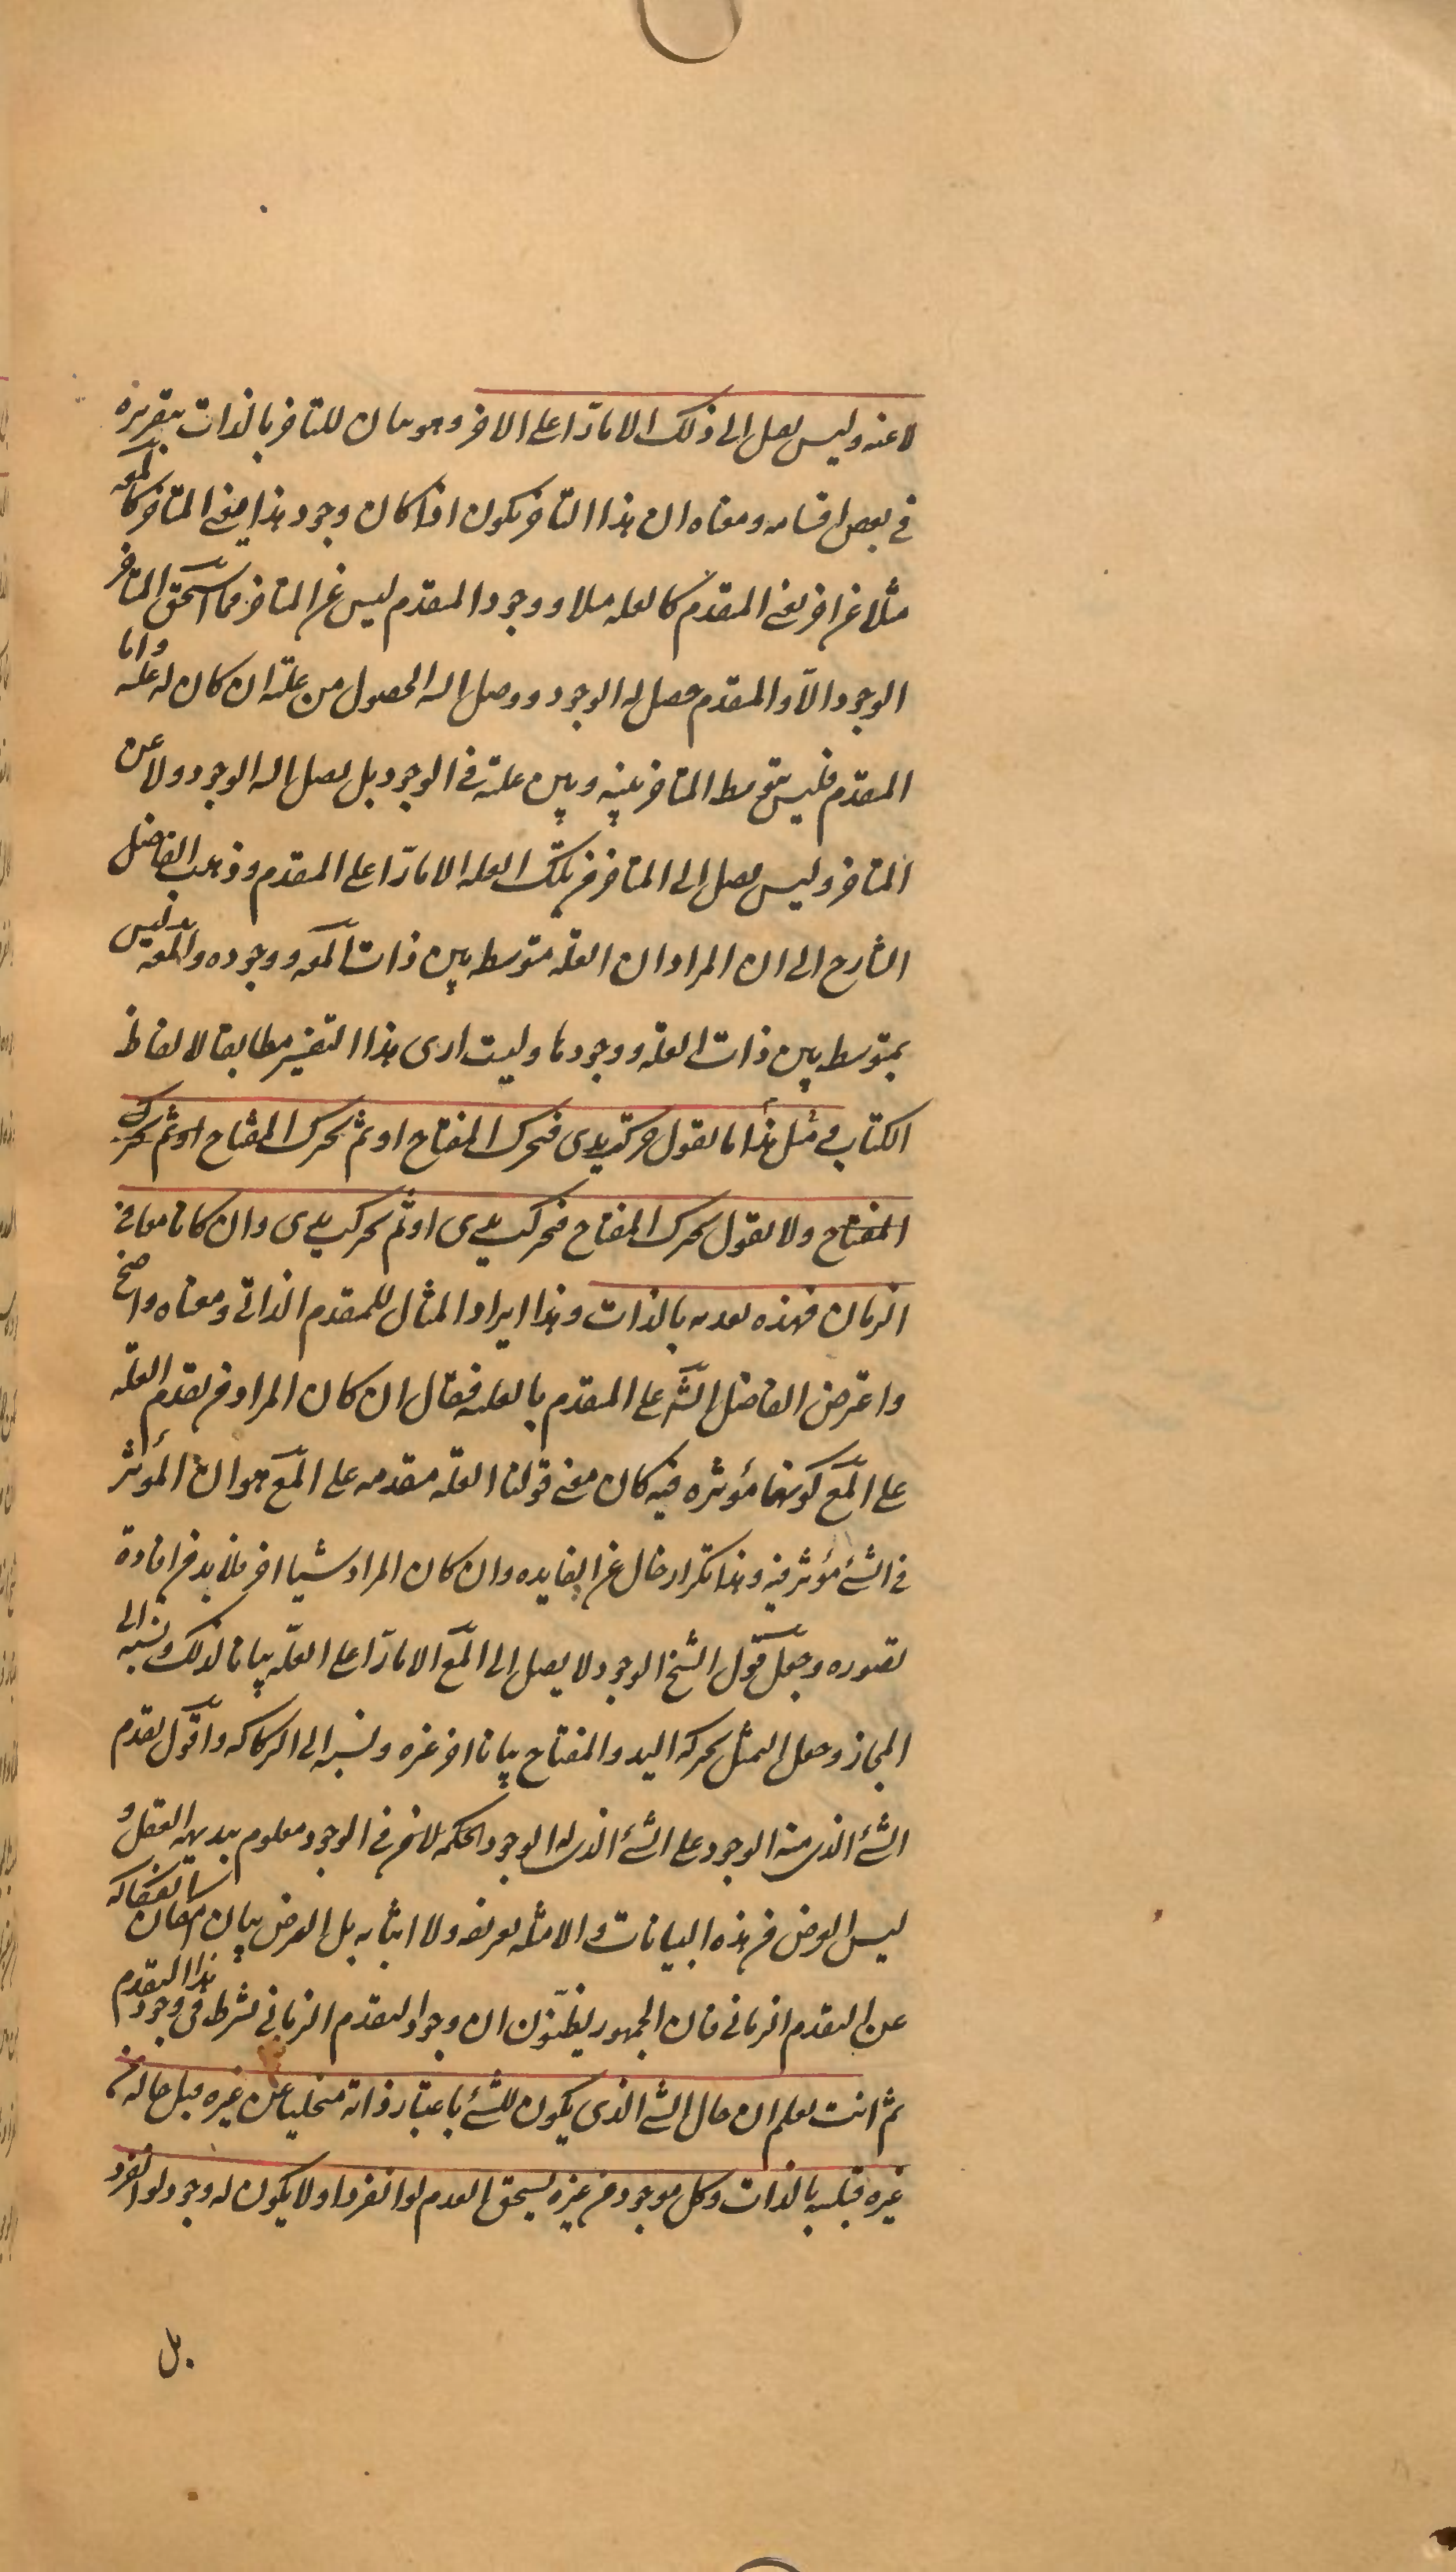 لا عنه وليس يصل الى ذلك الا مارّا على الاخر وهو بيان للتاخر بالذات بتقريره
في بعض اقسامه ومعناه ان هذا التاخر يكون اذا كان وجود هذا يعنى المتاخر كالمعه
مثلا عن اخر يعنى المتقدم كالعله مثلا ووجود المتقدم ليس عن المتاخر فما استحق المتاخر
الوجود الا والمتقدم حصل له الوجود ووصل اليه الحصول من علته ان كان له علة واما
المتقدم فليس يتوسط المتاخر بينه وبين علته في الوجود بل يصل اليه الوجود ولا عن
المتاخر وليس يصل الى المتاخر من تلك العله الا مارّا على المتقدم وذهب الفاضل
الشارح الى ان المراد ان العلّه متوسطه بين ذات المعه ووجوده والمعه ليس
بمتوسط بين ذات العلّه ووجودها وليست ارى هذا التفسير مطابقا لالفاظ
الكتاب في مثل هذا ما تقول حركت يدى فتحرك المفتاح او ثم تحرك المفتاح او ثم تحرك
المفتاح ولا تقول تحرك المفتاح فتحركت يدى او ثم تحركت يدى وان كانا معا في
الزمان فهذه بعديه بالذات وهذا ايراد المثال للمتقدم الذاتي ومعناه واضح
واعترض الفاضل الش على المتقدم بالعليه فقال ان كان المراد من تقدم العلّه
على المع كونها مؤثره فيه كان معنى قولنا العلّه متقدمه على المع هو ان المؤثر
في الشئ مؤثر فيه وهذا تكرار خال عن الفايده وان كان المراد شيئا اخر فلا بد من افادة
تصوره وجعل قول الشيخ الوجود لا يصل الى المع الا مارّا على العلّه بيانا لذلك ونسبه الى
المجاز وجعل التمثل بحركه اليد والمفتاح بيانا اخر غيره ونسبه الى الركاكه واقول تقدم
الشئ الذى منه الوجود على الشئ الذى له الوجود الحكم لاخر في الوجود معلوم ببديهه العقل و
ليس الغرض من هذه البيانات والامثله تعريفه ولا اثباته بل الغرض بيان امكان انفكاكه
عن التقدم الزماني فان الجمهور يظنّون ان وجود التقدم الزماني شرط في وجود هذا التقدم
ثم انت تعلم ان حال الشئ الذى يكون للشئ باعتبار ذاته متخليا عن غيره قبل حاله من
غيره قبليه بالذات وكل موجود من غيره يستحق العدم لو انفرد او لا يكون له وجود لو انفرد
بل